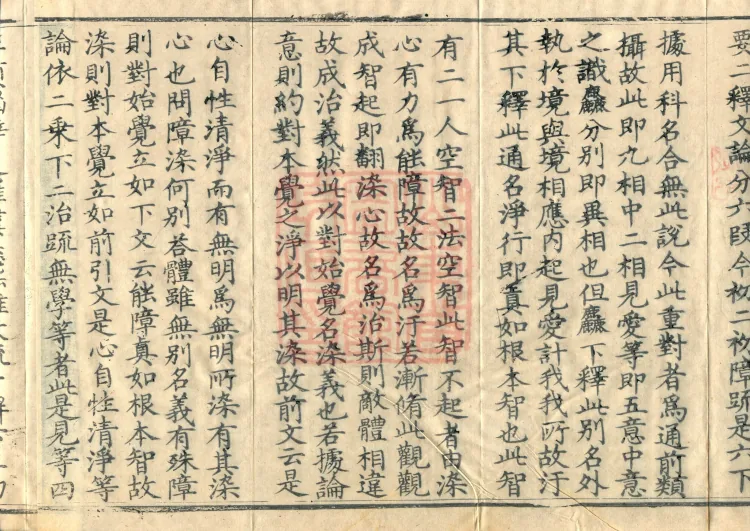 要二釋文論分六段今收二收障䟽是六下
據用科名合無此說今此重對者爲通前類
攝故此即九相中二相見愛等即五意中意
之識麤分別即異相也但麤下釋此別名外
執於境與境相應內起見愛計我我所故汙
其下釋此通名淨行即眞如根本智也此智
有二一人空智二法空智此智不起者由染
心有力爲能障故故名爲汙若漸脩此觀觀
成智起即翻染心故名爲治斯則敵體相違
故成治義然此以對始覺名染義也若據論
意則約對本覺之淨以明其染故前文云是
心自性清淨而有無明爲無明所染有其染
心也問障染何別荅體雖無別名義有殊障
則對始覺立如下文云能障眞如根本智故
染則對本覺立如前引文是心自性清淨等
論依二乘下二治䟽無學等者此是見等四